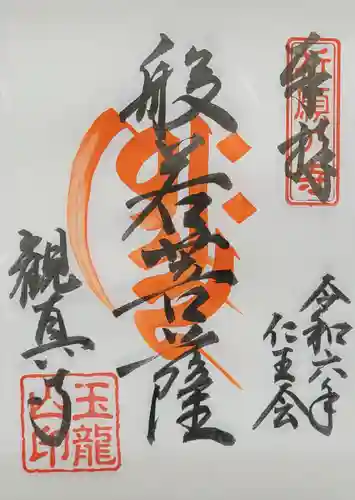 奉拝
令和六年
仁王会
般若菩薩
観真寺
玉龍
山印